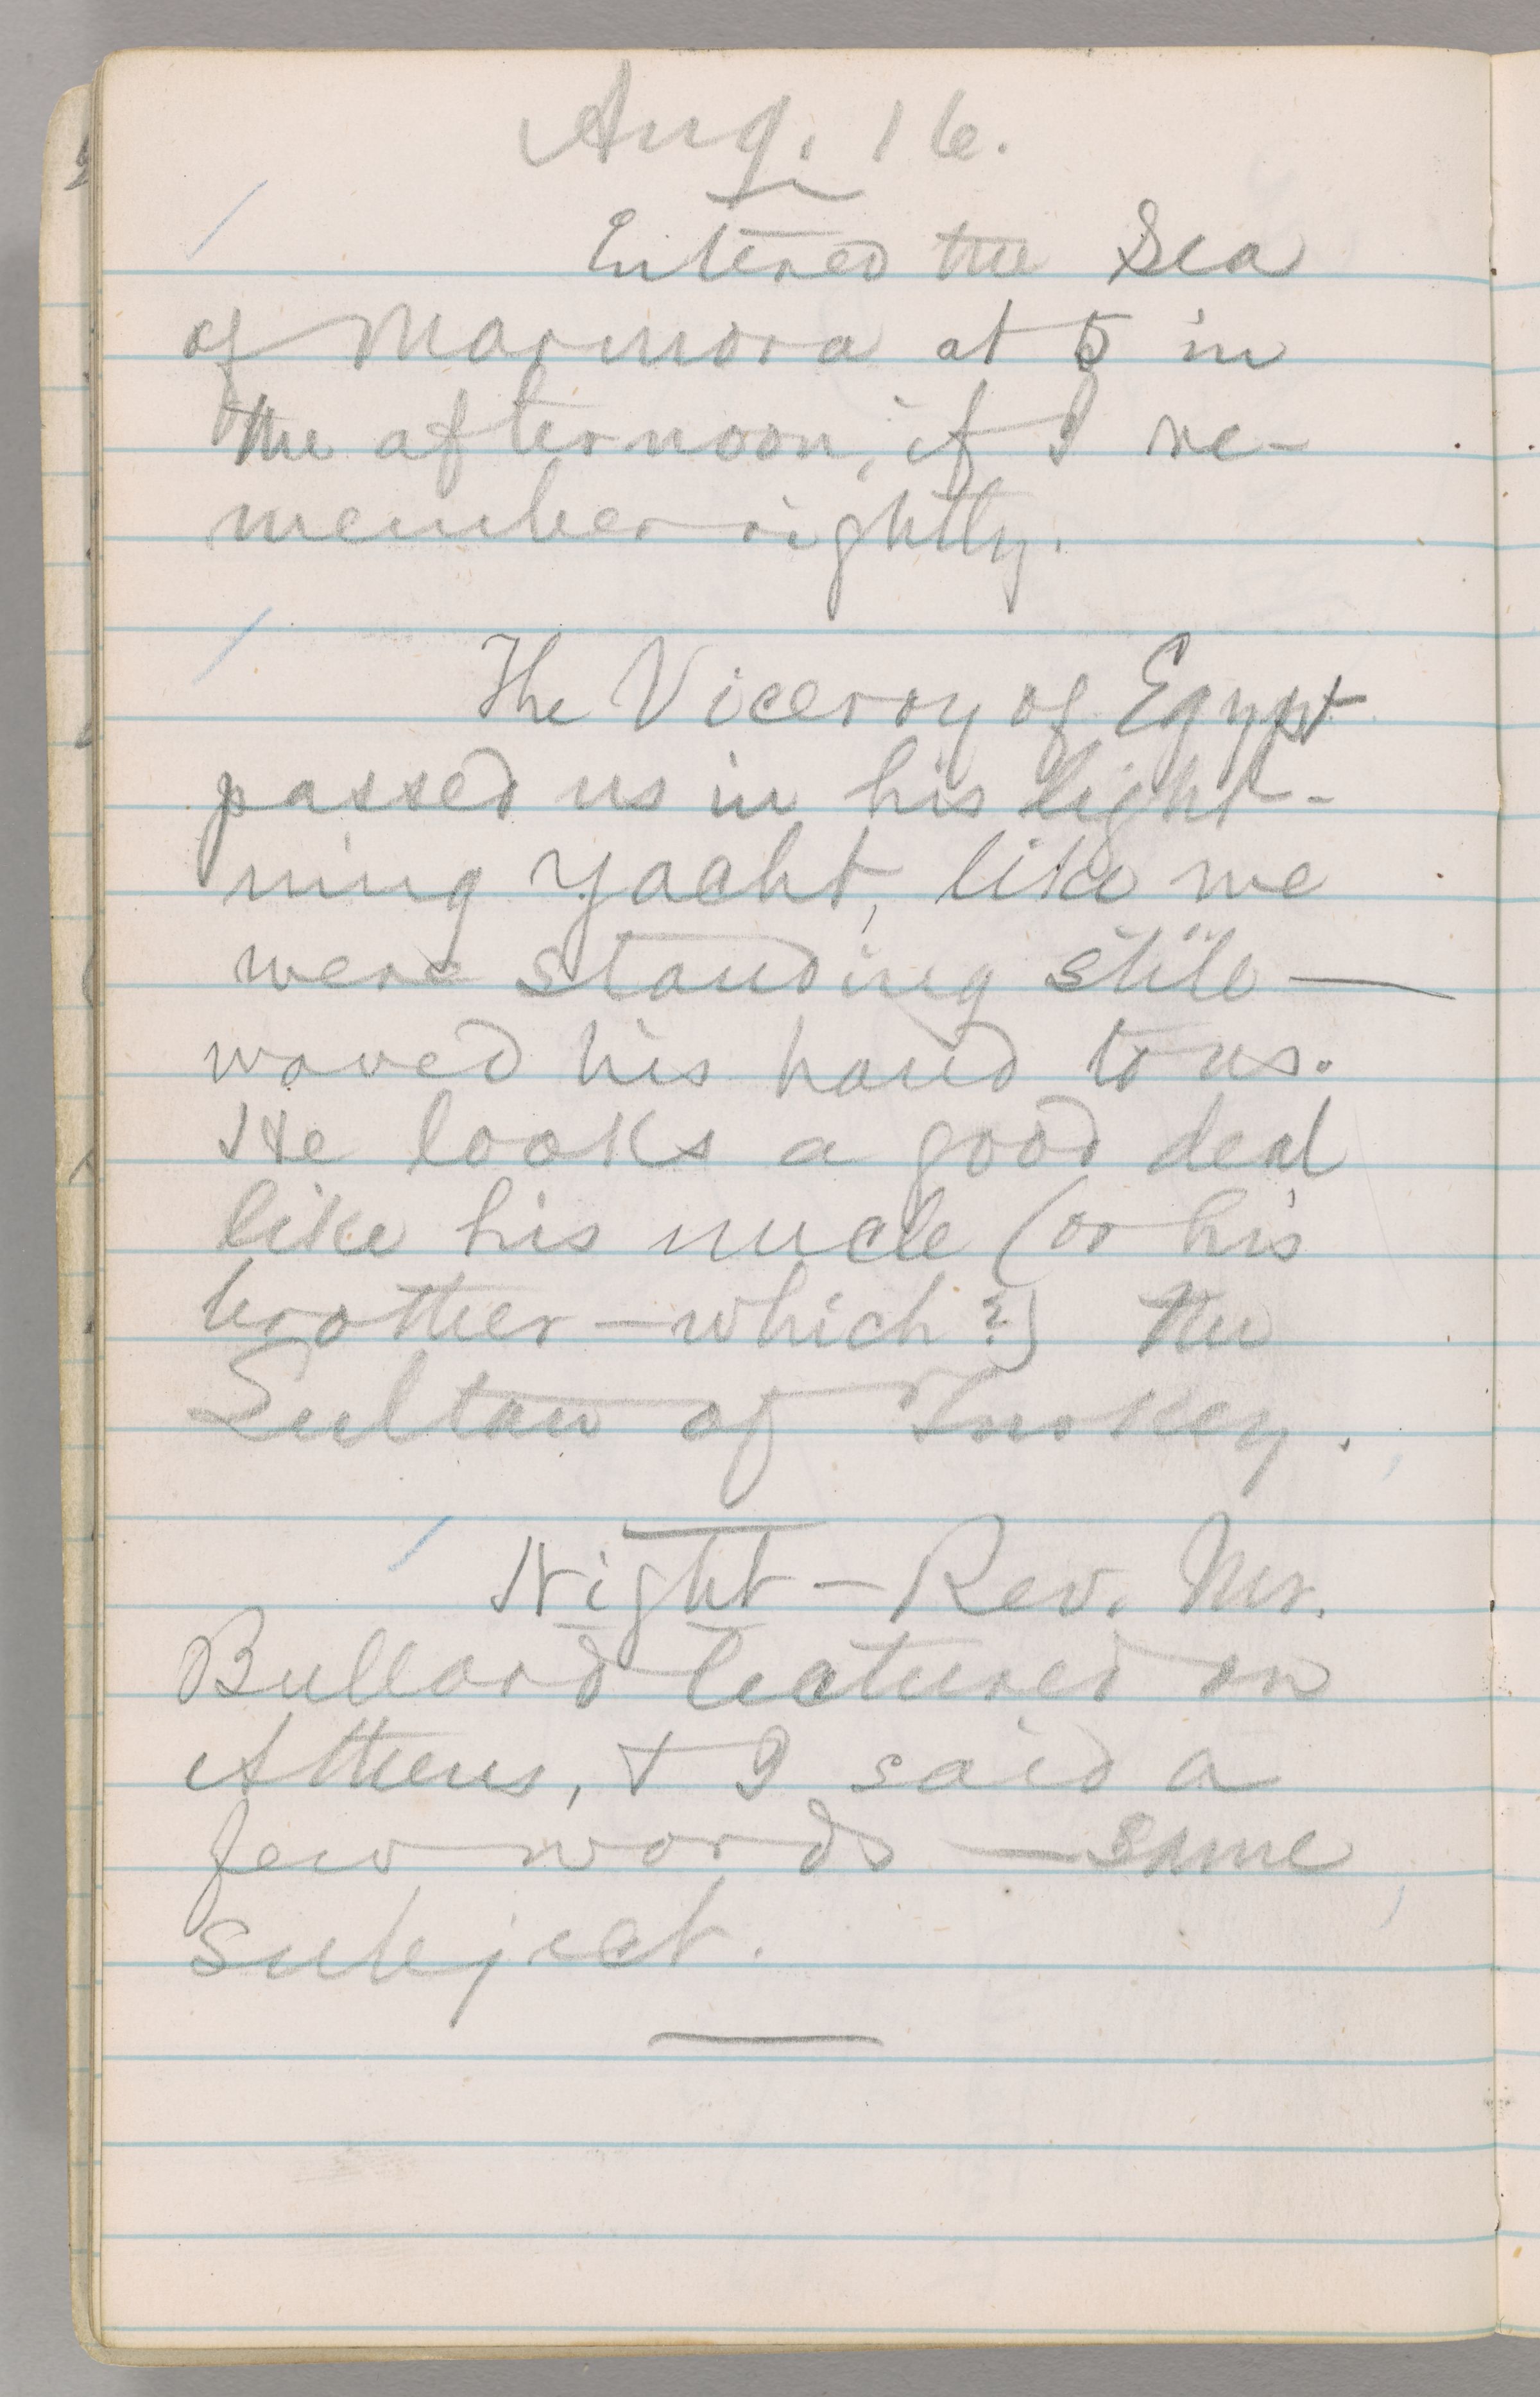 Aug. 16.
Entered the Sea
of Marmora at 5 in
the afternoon, if I re-
member rightly.
The Viceroy of Egypt
passed us in his light-
ning yacht, like we
were standing still —
waved his hand to us.
He looks a good deal
like his uncle (or his
brother — which?) the
Sultan of Turkey.
Night — Rev. Mr.
Bullard lectured on
Athens, & I said a
few words — same
subject.